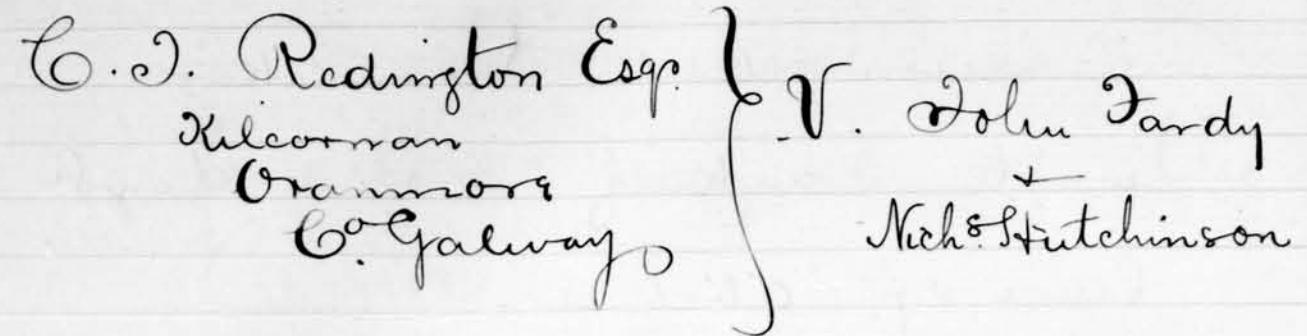 C. T. Redington Esqr.
Kilcornan
Oranmore
Co. Galway
V. John Fardy
+
Nichs. Hutchinson